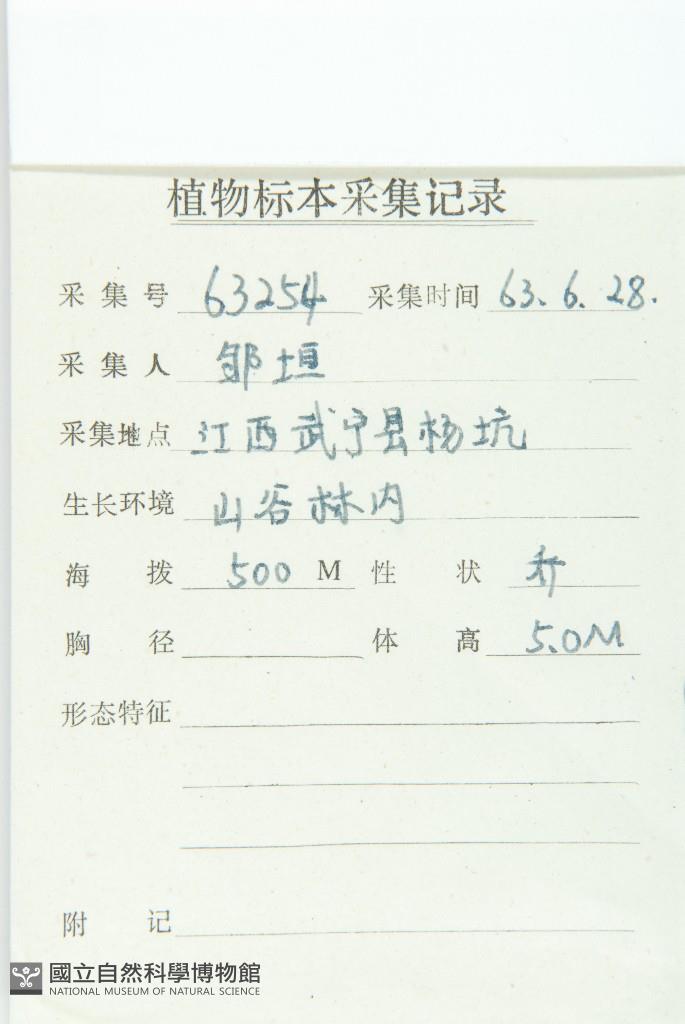 植物标本采集记录
采集号 63254 采集时间 63.6.28.
采集人 邹垣
采集地点 江西武宁县杨坑
生长环境 山谷林内
海拨 500 M 性状 乔
胸径 体高 5.0M
形态特征
附记
國立自然科學博物館
NATIONAL MUSEUM OF NATURAL SCIENCE